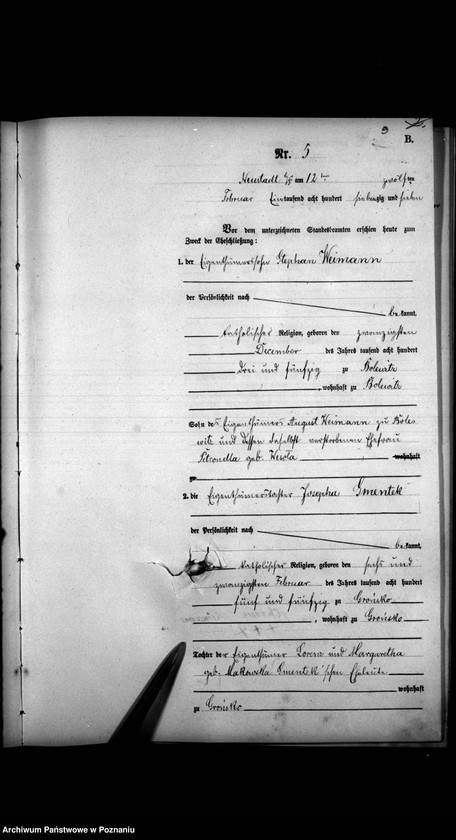 B.
Nr. 5
Neustadt b/P am 12ten zwölften
Februar Eintausend acht hundert siebenzig und sieben
Vor dem unterzeichneten Standesbeamten erschien heute zum
Zweck der Eheschließung:
1. der Eigenthümerssohn Stephan Weimann
der Persönlichkeit nach
bekannt,
katholischer Religion, geboren den zwanzigsten
December des Jahres tausend acht hundert
drei und fünfzig zu Bolewitz
, wohnhaft zu Bolewitz
Sohn des Eigenthümers August Weimann zu Bole-
witz und dessen daselbst verstorbenen Ehefrau
Petronella geb. Wesola wohnhaft
zu
2. die Eigenthümerstochter Josepha Gmentek
der Persönlichkeit nach
bekannt,
katholischer Religion, geboren den sechs und
zwanzigsten Februar des Jahres tausend acht hundert
fünf und fünfzig zu Groinsko
, wohnhaft zu Groinsko
Tochter der Eigenthümer Lorenz und Margaretha
geb. Makowska Gmentek'schen Eheleute
wohnhaft
zu Groinsko
Archiwum Państwowe w Poznaniu